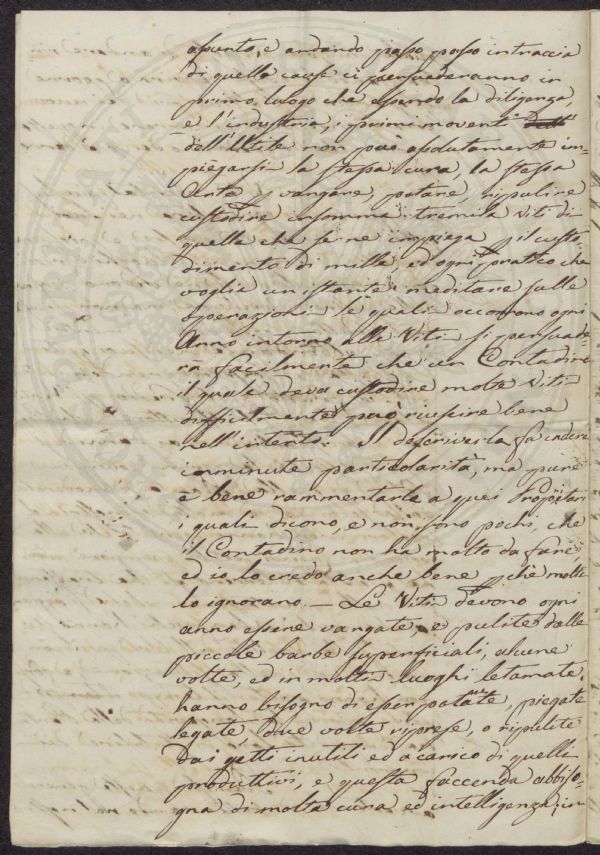 assunto, e andando passo passo in traccia
di quelle cause ci persuaderanno in
primo luogo che essendo la diligenza,
e l'industria, i primi moventi
dell'Utile non può assolutamente im-
piegarsi la stessa cura, la stessa
Arte p vangare, potare, ripulire
custodire insomma tremila Viti di
quella che se ne impiega p il custo-
dimento di mille, ed ogni prattico che
voglia un istante meditare sulle
operazioni le quali occorrono ogni
Anno intorno alle Viti si persuade-
ra facilmente che un Contadino
il quale deva custodire molte Viti
difficilmente può riuscire bene
nell'intento. Il descriverla fa cadere
in minute particolarità, ma pure
è bene rammentarle a quei Propietari
i quali dicono, e non sono pochi, che
il Contadino non ha molto da fare,
ed io lo credo anche bene p chè molti
lo ignorano. — Le Viti devono ogni
anno essere vangate, e pulite dalle
piccole barbe superficiali, alcune
volte, ed in molti luoghi letamate,
hanno bisogno di esser potate, piegate
legate, due volte riprese, o ripulite
dai getti inutili ed a carico di quelli
produttivi, e questa faccenda abbiso-
gna di molta cura ed intelligenza, in